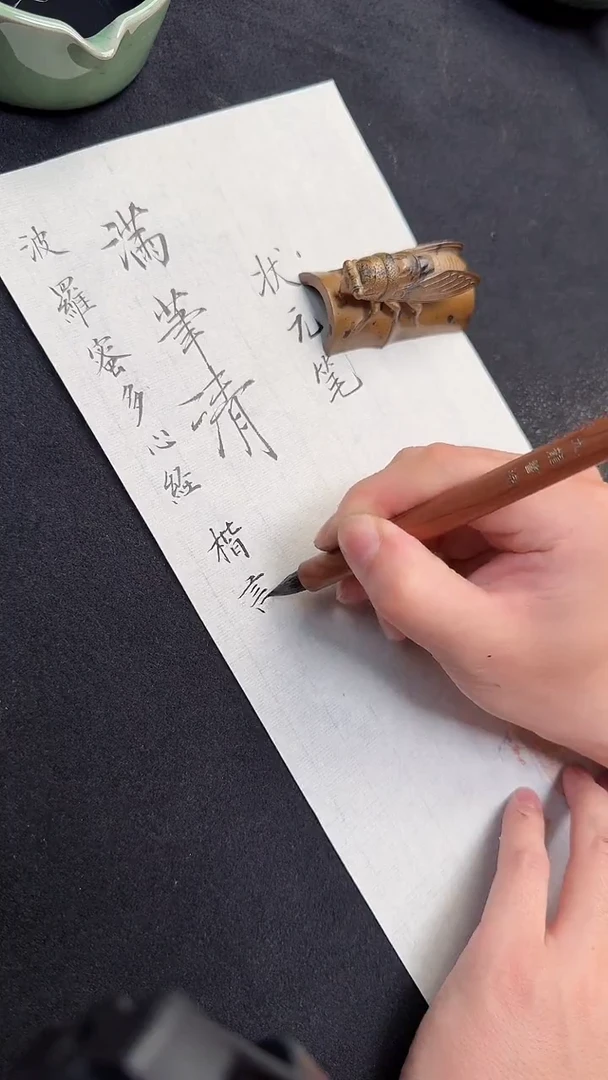 状元笔
满筆清
波羅蜜多心経楷言